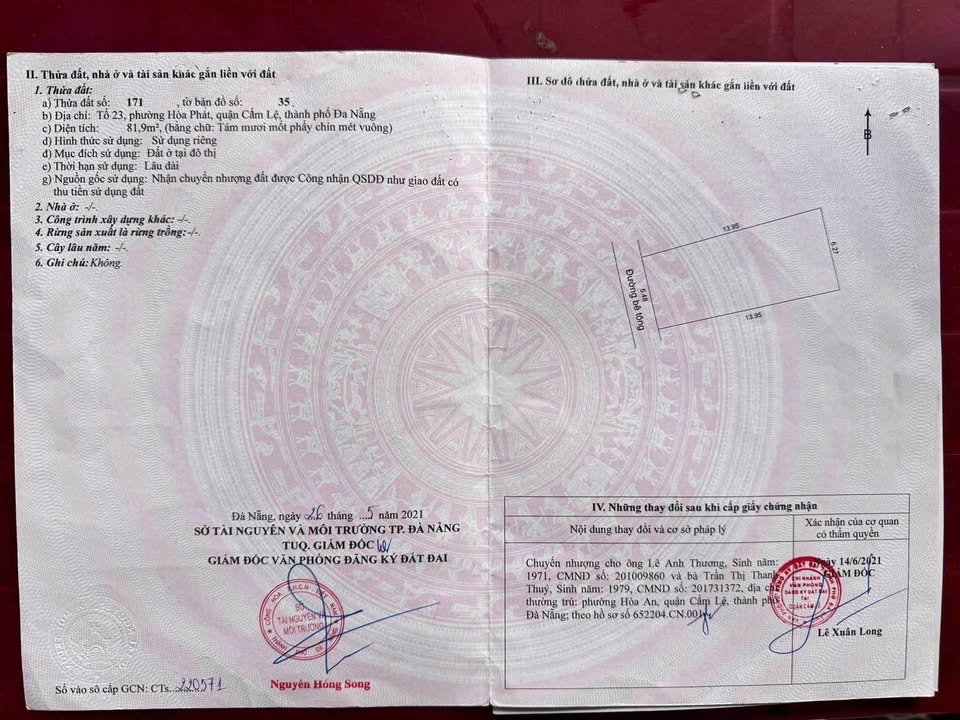 II. Thửa đất, nhà ở và tài sản khác gắn liền với đất
1. Thửa đất:
a) Thửa đất số: 171 , tờ bản đồ số: 35
b) Địa chỉ: Tổ 23, phường Hòa Phát, quận Cẩm Lệ, thành phố Đà Nẵng
c) Diện tích: 81,9m², (bằng chữ: Tám mươi mốt phẩy chín mét vuông)
d) Hình thức sử dụng: Sử dụng riêng
đ) Mục đích sử dụng: Đất ở tại đô thị
e) Thời hạn sử dụng: Lâu dài
g) Nguồn gốc sử dụng: Nhận chuyển nhượng đất được Công nhận QSDĐ như giao đất có
thu tiền sử dụng đất
2. Nhà ở: -/-.
3. Công trình xây dựng khác: -/-.
4. Rừng sản xuất là rừng trồng: -/-.
5. Cây lâu năm: -/-.
6. Ghi chú: Không.
Đà Nẵng, ngày 26 tháng ...5 năm 2021
SỞ TÀI NGUYÊN VÀ MÔI TRƯỜNG TP. ĐÀ NẴNG
TUQ. GIÁM ĐỐC
GIÁM ĐỐC VĂN PHÒNG ĐĂNG KÝ ĐẤT ĐAI
SỞ
TÀI NGUYÊN VÀ
MÔI TRƯỜNG
Nguyễn Hồng Song
Số vào sổ cấp GCN: CTs...220571
III. Sơ đồ thửa đất, nhà ở và tài sản khác gắn liền với đất
B
13.95
6.27
5.48
Đường bê tông
13.95
IV. Những thay đổi sau khi cấp giấy chứng nhận
Nội dung thay đổi và cơ sở pháp lý
Xác nhận của cơ quan
có thẩm quyền
Chuyển nhượng cho ông Lê Anh Thương, Sinh năm:
1971, CMND số: 201009860 và bà Trần Thị Thanh
Thuý, Sinh năm: 1979, CMND số: 201731372, địa chỉ
thường trú: phường Hòa An, quận Cẩm Lệ, thành phố
Đà Nẵng; theo hồ sơ số 652204.CN.001
Ngày 14/6/2021
GIÁM ĐỐC
CHI NHÁNH
VĂN PHÒNG
ĐĂNG KÝ ĐẤT ĐAI
TẠI
QUẬN CẨM LỆ
Lê Xuân Long